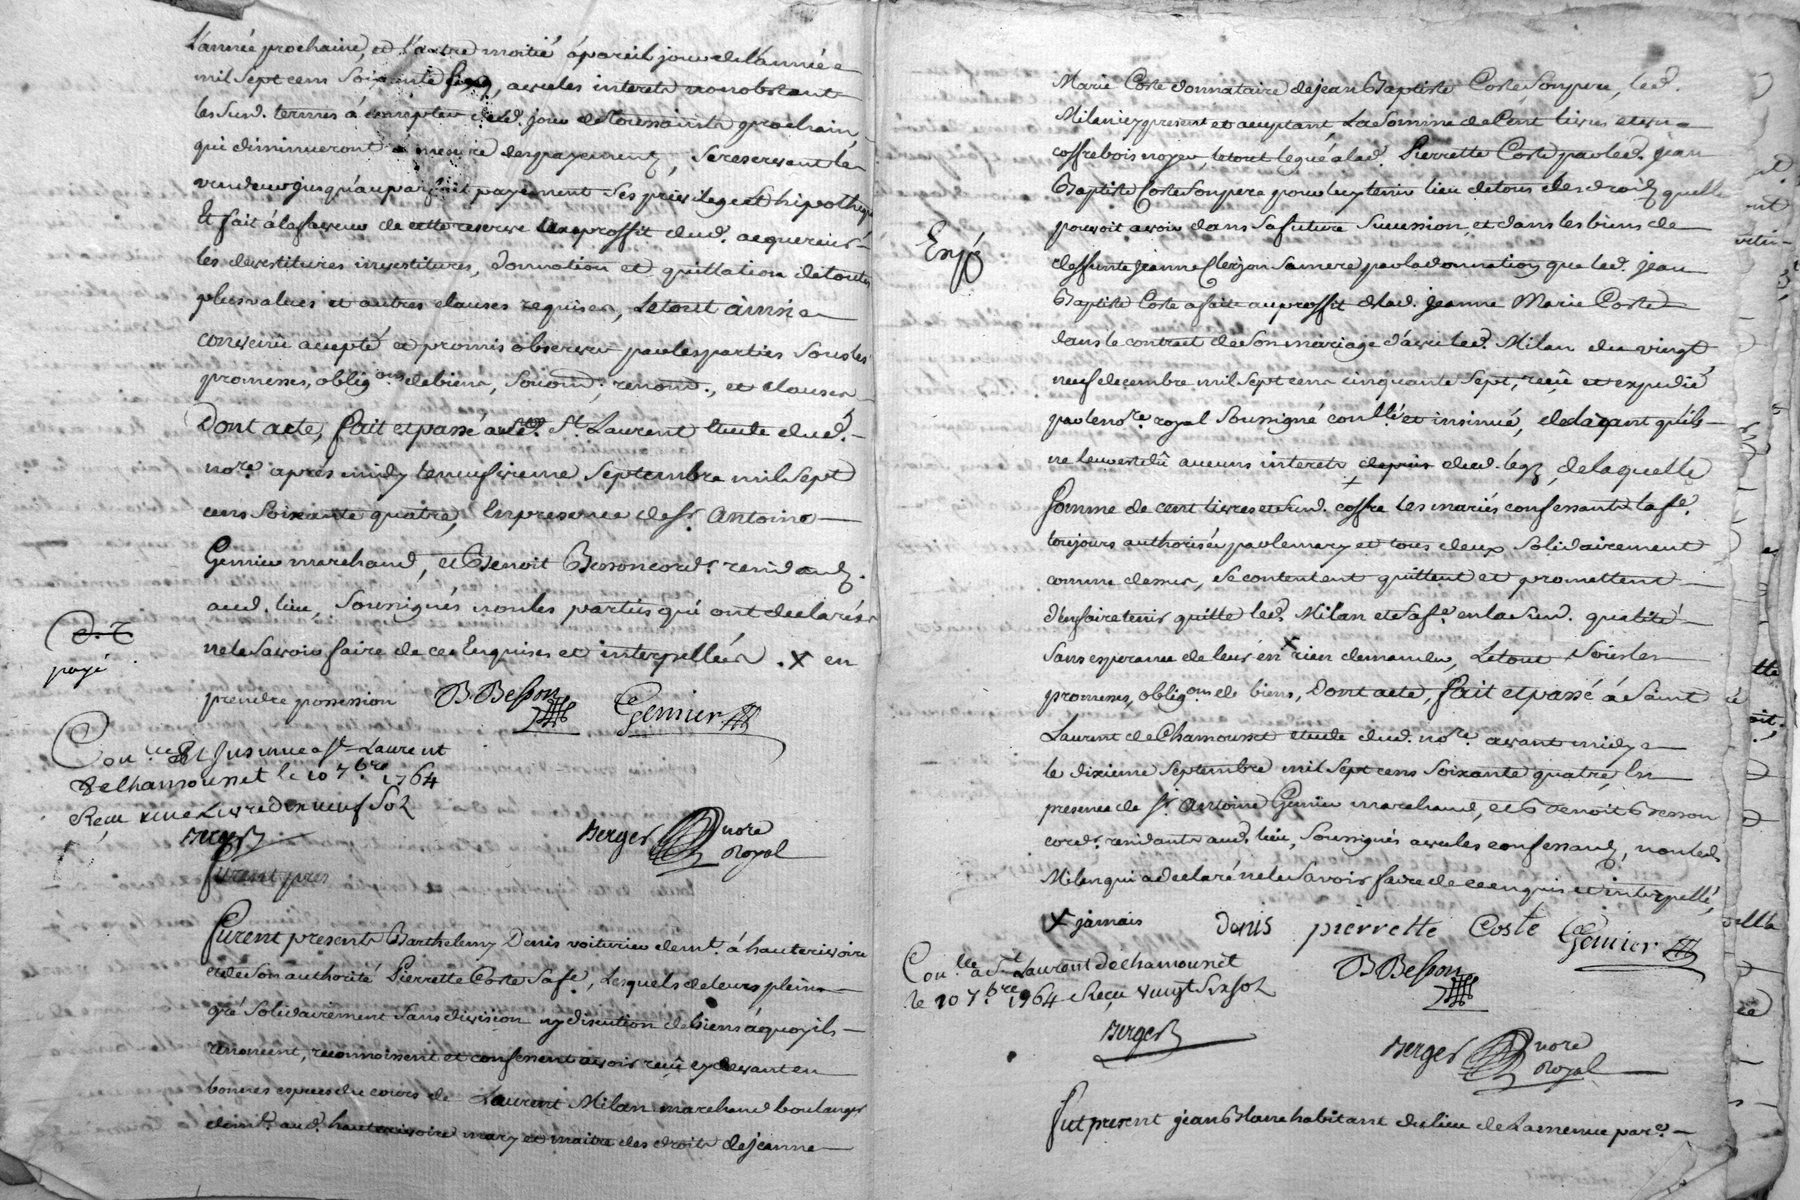 L'année prochaine, et l'autre moitié à pareil jour de l'année
mil sept cens soixante six, avec les interets nonobstant
les sud. termes à compter dud. jour de Toussaints prochain,
qui diminueront a mesure des payements, se reservant le
vendeur jusqu'au parfait payement ses privilege et hipotheque
Et fait à la faveur de cette reserve au proffit dud. acquereur
les devestitures investitures, donnation et quittation de toutes
plus values et autres clauses requises, Le tout ainsi
convenu accepté et promis observer par les parties sous les
promesses, oblig.ons de biens, soiond; renond., et clauses
Dont acte, fait et passé aud. St. Laurent Etude dud.
nore. après midy le neufvieme Septembre mil sept
cens Soixante quatre, En presence de Sr. Antoine
Genier marchand, et Benoit Besson cord.r residants
aud. lieu, Soussignés non les parties qui ont declarés
ne le savoir faire de ce Enquises et interpellées . X en
prendre possession BBesson Genier
d. T
payé
Con.lle Et Insinué a St. Laurent
de chamousset le 10 7bre 1764
Reçu une Livre dix neuf Sols
Berger
Berger nore
Royal
furent pres
Furent presents Barthelemy Denis voiturier demt. à hauterivoire
et de son authorité Pierrette Coste sa fe., Lesquels de leurs pleins
gré Solidairement Sans division ny discution de biens à quoy ils
renoncent, reconnoissent et confessent avoir reçu cy devant en
bonnes especes du cours de Laurent Milan marchand boulanger
demt. aud. hauterivoire mary et maitre des droits de jeanne
Marie Coste donnataire de jean Baptiste Coste Son pere, led.
Milan icy present et acceptant, La Somme de Cent livres et un
coffre bois noyer, le tout legué a lad. Pierrette Coste par led. jean
Baptiste Coste Son pere pour luy tenir lieu de tous les droits quelle
pouvoit avoir dans Sa future Succession, et dans les biens de
deffunte jeanne Clerjon Sa mere par la donnation que led. jean
Baptiste Coste a faite au proffit de lad. jeanne Marie Coste
dans le contrat de Son mariage d'avec led. Milan du vingt
neuf decembre mil sept cens cinquante sept, reçu et expedié
par le nore. royal Soussigné con.llé et insinué, declarant qu'ils
ne leur est dû aucuns interets depuis dud. legs, de laquelle
Somme de cent livres et sud. coffre les mariés confessants la fe.
toujours authorisée par le mary et tous deux Solidairement
comme dessus, se contentent quittent et promettent
d'en faire tenir quitte led. Milan et sa fe. en la sud. qualité
Sans esperance de leur en X rien demander, Le tout Sous les
promesses, oblig.ons de biens, Dont acte, fait et passé à Saint
Laurent de Chamousset etude dud. nore. avant midy
le dixieme Septembre mil sept cens Soixante quatre, En
presence de Sr. Antoine Genier marchand, et Benoit Besson
cord.r residants aud. lieu, Soussignés avec les confessants, non led.
Milan qui a declaré ne le Savoir faire de ce enquis et interpellé,
X jamais Denis pierrette Coste Genier
BBesson
Con.lle a St Laurent de chamousset
le 10 7bre. 1764 Reçu vingt six sols
Berger
Berger nore
Royal
Fut present jean Blanc habitant du lieu de Lamenue par.e